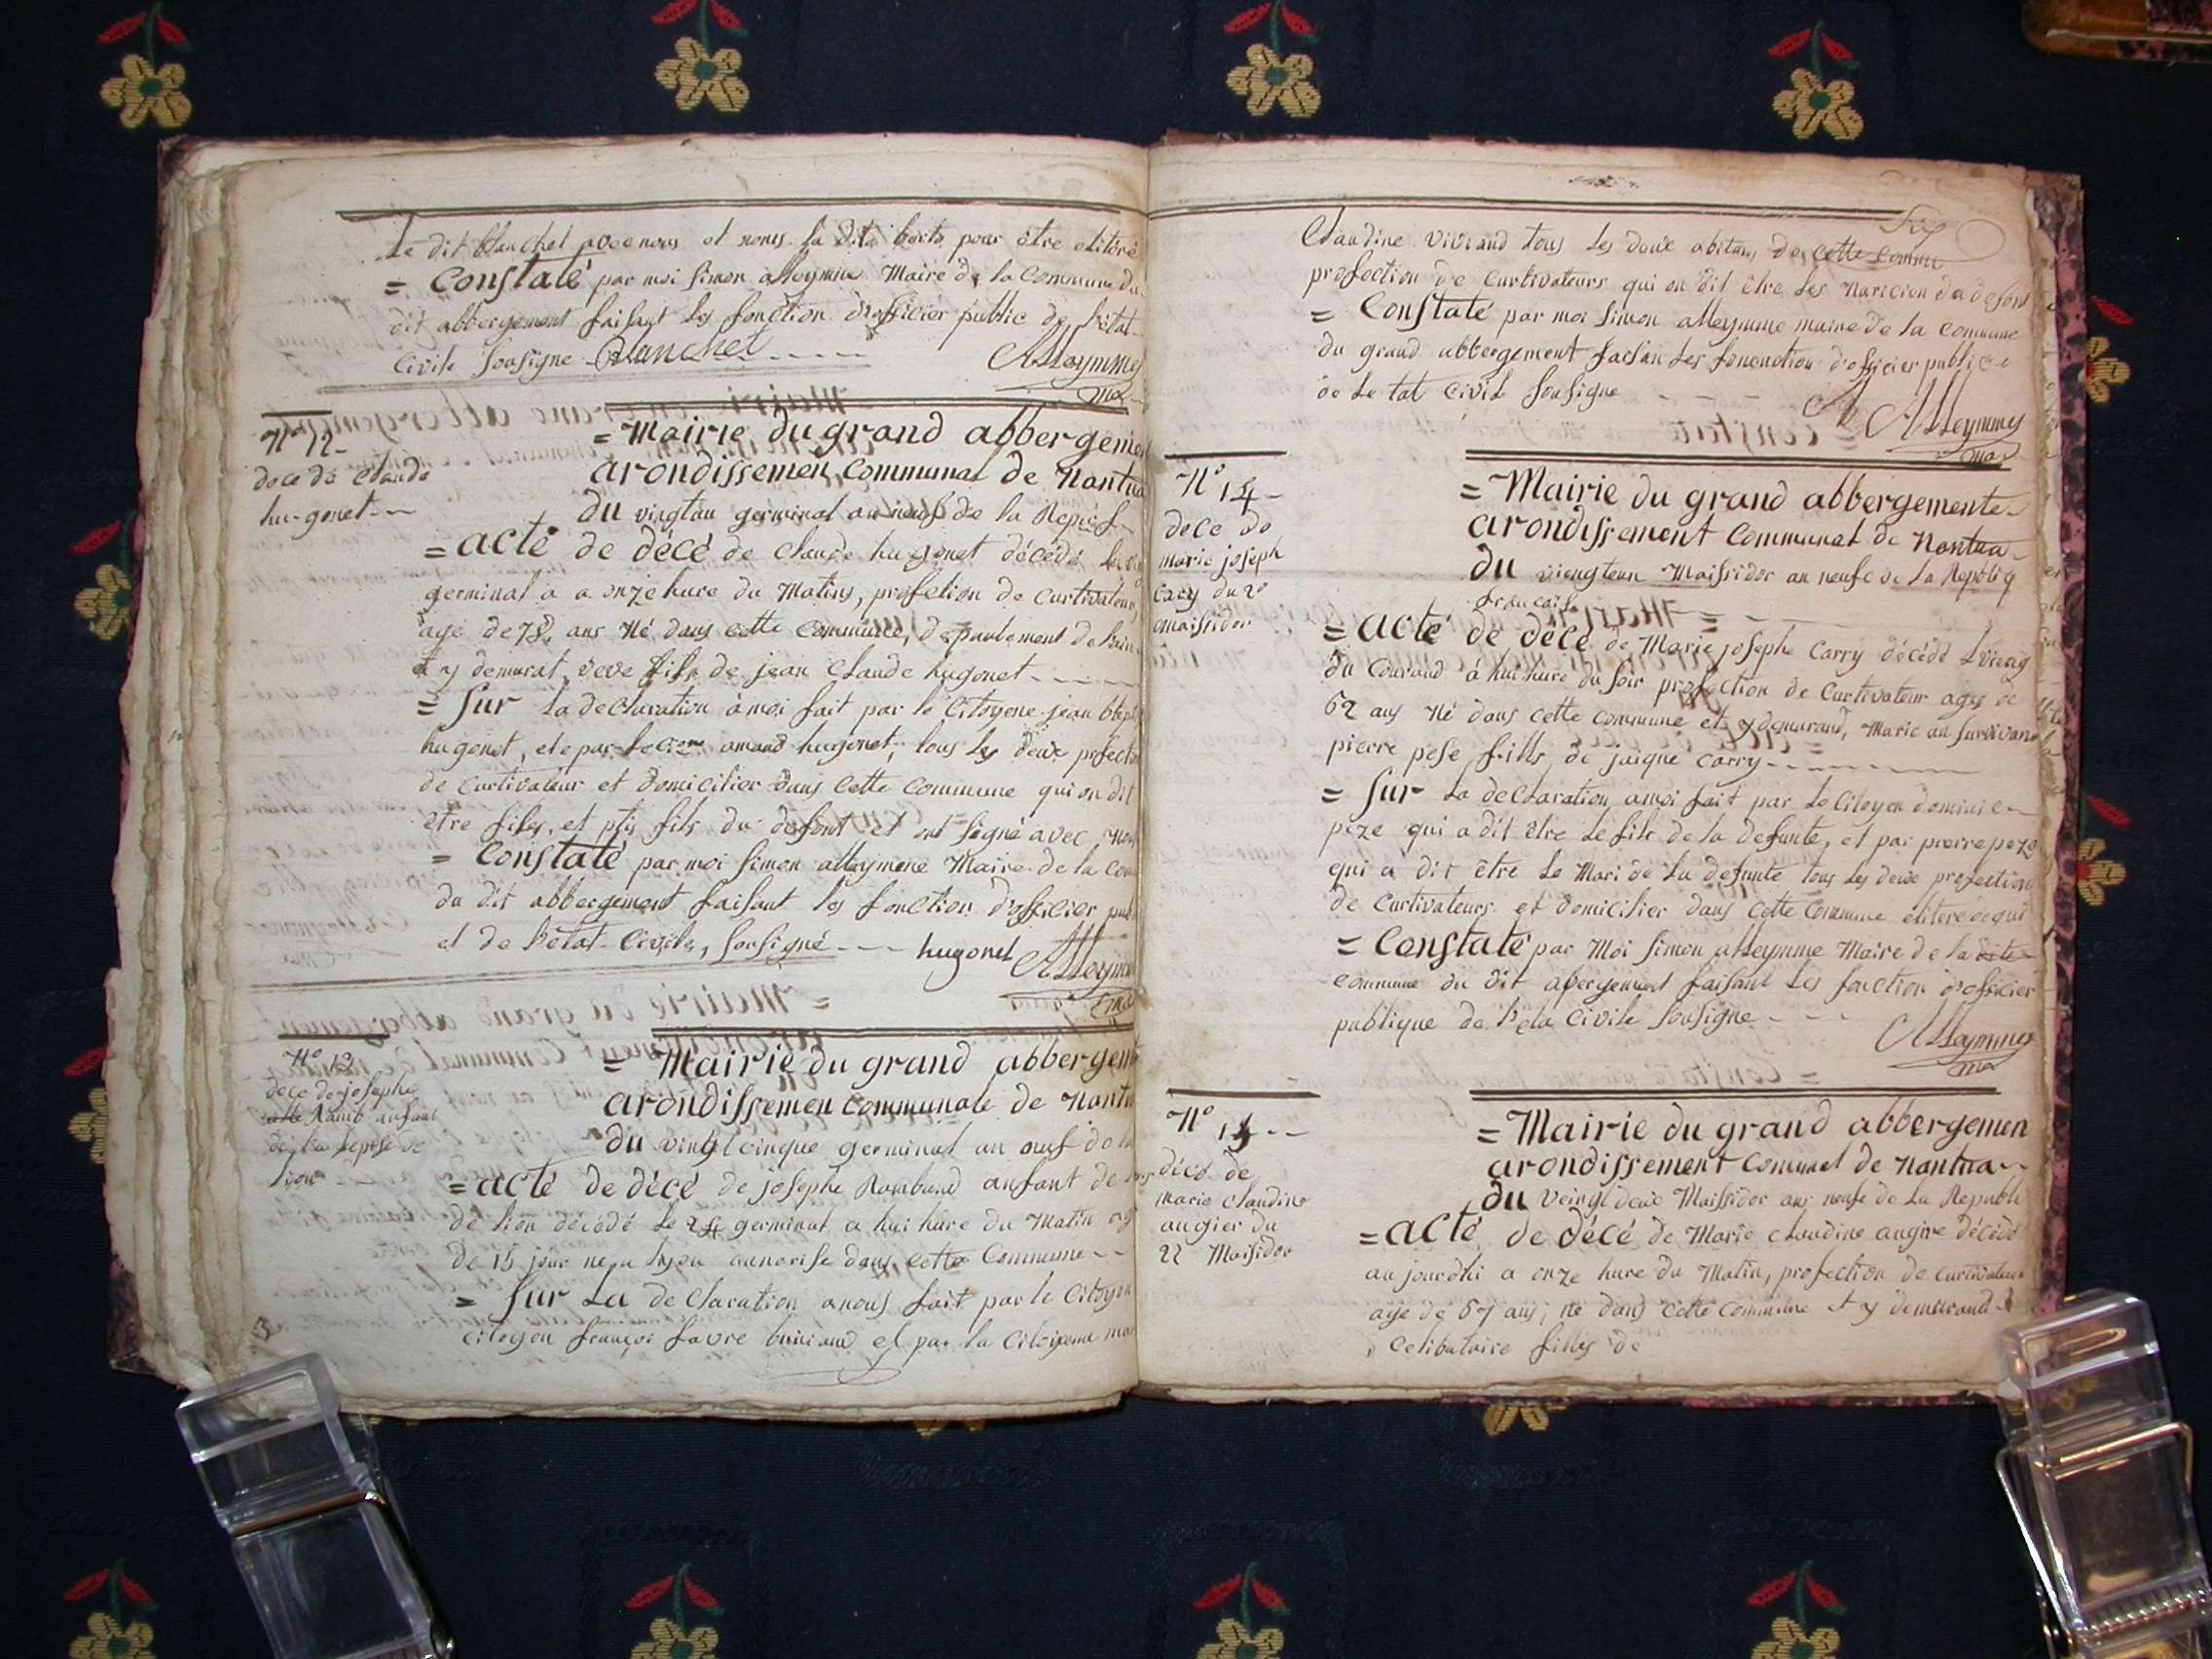 Le dit blanchet avec nous et nomes la dite pour être olitéré
= Constaté par moi simon alleymme Maire de la Commune du
dit abbergement faisant les fonction d'officier public de l'état
Civile Sousigne Blanchet Alleymme
ma
N° 12
decé de Claude
hugonet
= Mairie du grand abbergeme
arondissemen Communal de Nantua
Du vingtun germinal an neuf de la Repub
= acté de décé de Claude hugonet décédé le vin
germinal a a onze hure du Matins, profetion de Curtivateur
agé de 78 ans Né dans cette Commune, departement de l'ain
et y demurat, veve fils de jean Claude hugonet
= Sur la declaration à moi fait par le Citoyene jean
hugonet, et e par le amand hugonet, tous les deux profecti
de Curtivateur et domicilier dans Cette Commune qui on dit
etre fils, et ptis fils du defont et ont signé avec nou
= Constaté par moi simon alleymene Maire de la Com
du dit abbergement faisant les fonction d'officier publ
et de l'état Civile, sousigné hugonet Alleymme
ma
N° 13
decé de josephe
Ramb anfant
de la
lion
= Mairie du grand abbergem
arondissemen communale de nantu
Du vingt cinque germinal an neuf de la
= acté de décé de josephe Rambaud anfant de
de lion décédé le 24 germinal a hui hure du Matin ag
de 15 jour dans cette Commune
= Sur La declaration a nous fait par le Citoyen
citoyen françoi favre et par la Citoiyene mar
Claudine Viviand tous les deux abitans de cette Commu
profection de Curtivateurs qui on dit être les du defont
= Constaté par moi simon alleymme maire de la Commune
du grand abbergement faisan les d'officier public
de Le tat Civile Sousigne
Alleymmes
ma
N° 14
decé de
marie joseph
cary du 20
maissidor
= Mairie du grand abbergemente
arondissement Communal de Nantua
Du viengteun Maissidor an neufe de La Republiq
francaise
= acté de décé de Marie josephe Carry décédé
du Courand à huithure du soir profection de Curtivateur ages de
62 ans Né dans cette commune et y demurand, Marie au survivan
pierre pese fills, de jaique Carry
= Sur La declaration amoi fait par Le Citoyen dominie
peze qui a dit être le fils de la defunte, et par pierre peze
qui a dit être le Mari de la defunte tous les deux profection
de Curtivateurs et domicilier dans cette Commune
= Constaté par Moi simon alleymme Maire de la dite
commune du dit abergement faisant Les fonction d'officier
publique de l'eta Civile Sousigne
Alleymmes
ma
N° 15
décé de
marie claudine
augier du
22 Maisidor
= Mairie du grand abbergemen
arondissement communel de nantua
Du veingt deuc Maissidor an neufe de La Republi
= acté de décé de Marie claudine augire décédé
au jourdhi a onze hure du Matin, profection de Curtivateur
age de 67 ans, né dans cette commune et y demeurand
, Celibataire filles de